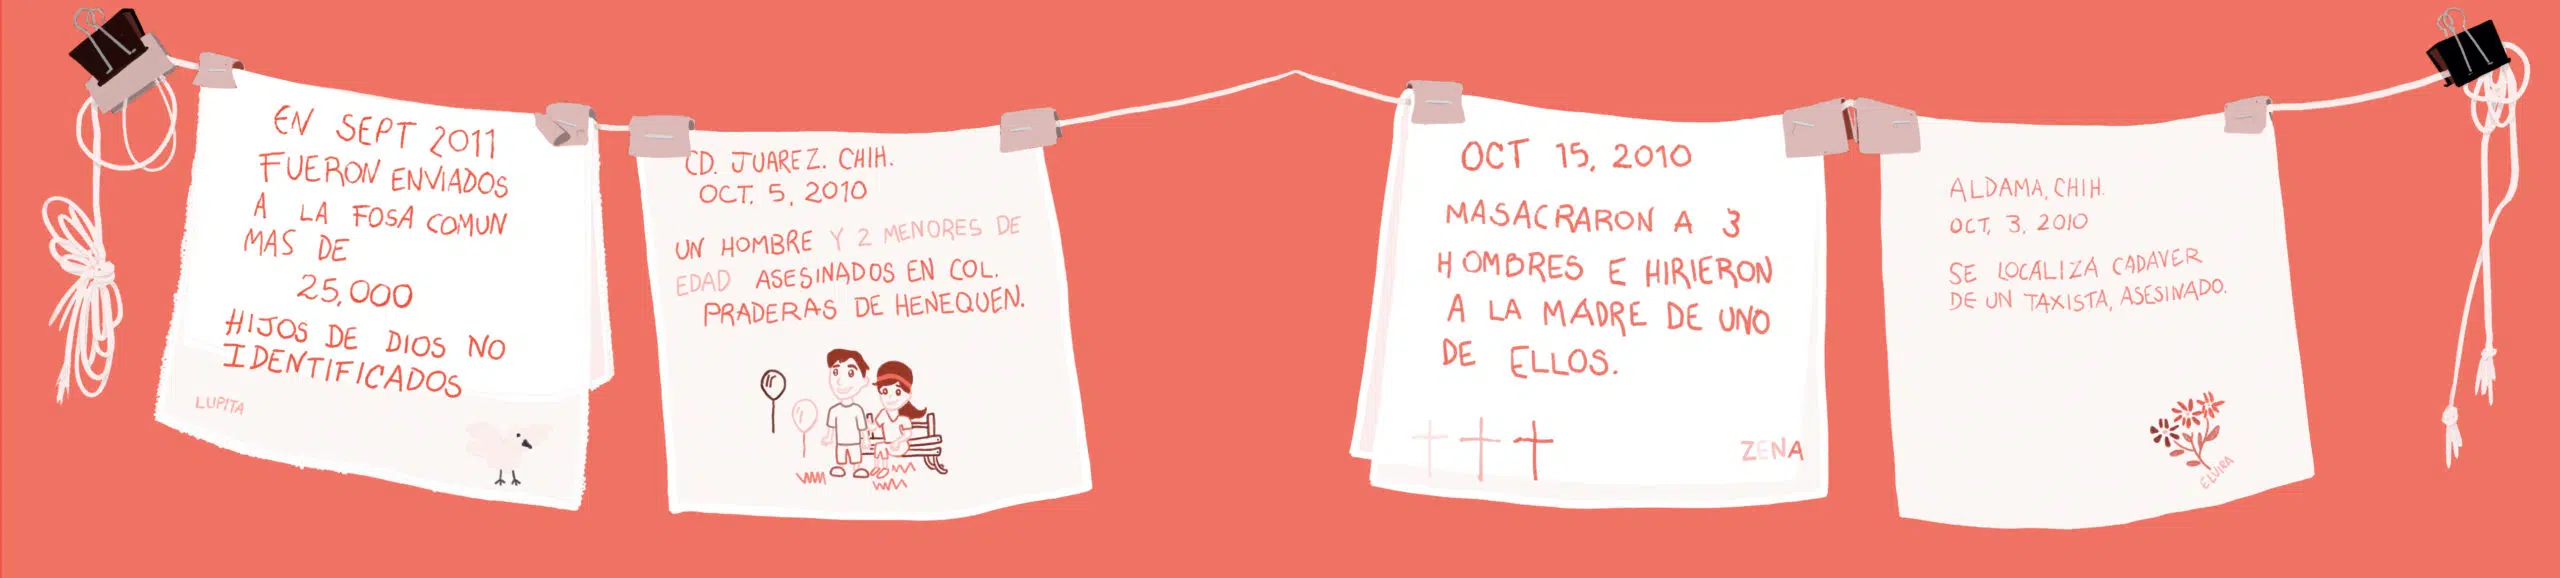 EN SEPT 2011
FUERON ENVIADOS
A LA FOSA COMUN
MAS DE
25,000
HIJOS DE DIOS NO
IDENTIFICADOS
LUPITA
CD. JUAREZ. CHIH.
OCT. 5, 2010
UN HOMBRE Y 2 MENORES DE
EDAD ASESINADOS EN COL.
PRADERAS DE HENEQUEN.
OCT 15, 2010
MASACRARON A 3
HOMBRES E HIRIERON
A LA MADRE DE UNO
DE ELLOS.
ZENA
ALDAMA, CHIH.
OCT, 3, 2010
SE LOCALIZA CADAVER
DE UN TAXISTA, ASESINADO.
ELVIRA